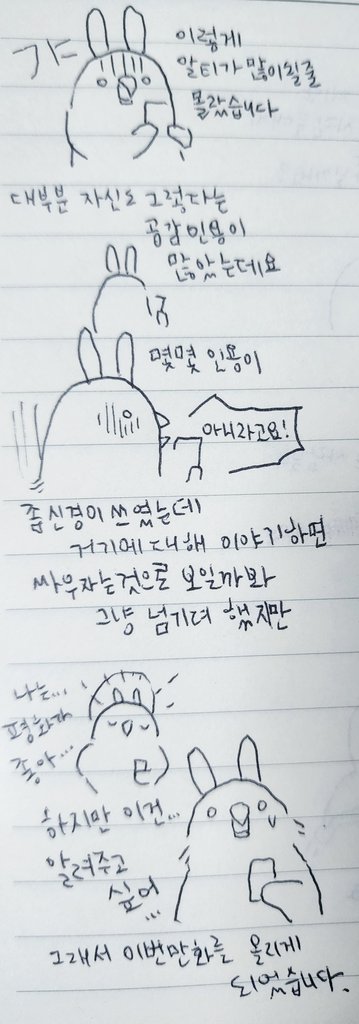 이렇게
알티가 많이될줄
몰랐습니다
대부분 자신도 그렇다는
공감인용이
많았는데요
몇몇 인용이
아니라고요!
좀신경이 쓰였는데
거기에 대해 이야기하면
싸우자는것으로 보일까봐
그냥 넘기려 했지만
나는...
평화가
좋아...
하지만 이건...
알려주고
싶어
...
그래서 이번만화를 올리게
되었습니다.